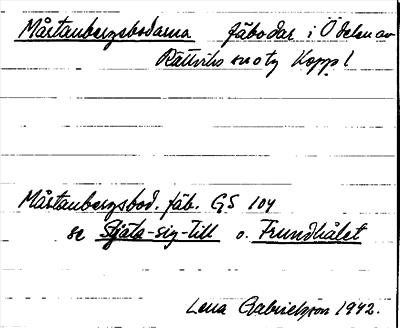 Mårtanbergsbodarna fäbodar i Ö delen av
Rättviks sn o ty Kopp l
Mårtanbergsbod. fäb. GS 104
se Stjäla-sig-till o. Frundhålet
Lena Gabrielsson 1942.